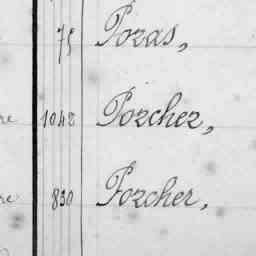 75 Poras,
re 1042 Porcher,
re 830 Porcher,